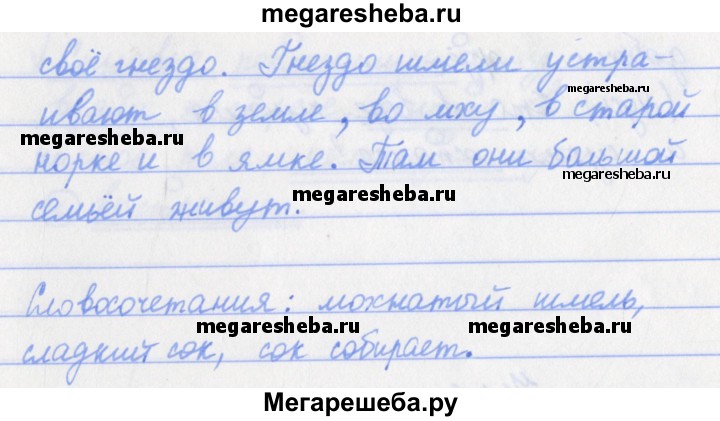 megaresheba.ru
своё гнездо. Гнездо шмели устра-
megaresheba.ru
ивают в земле, во мху, в старой
megaresheba.ru
норке и в ямке. Там они большой
megaresheba.ru
megaresheba.ru
семьёй живут.
Словосочетания: мохнатый шмель,
megaresheba.ru megaresheba.ru
сладкий сок, сок собирает.
Мегарешеба.ру